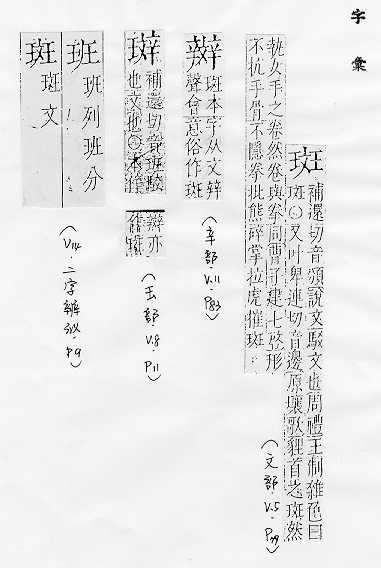 字 彙
斑 補還切音頒說文駁文也周禮王制雜色曰
斑○又叶卑連切音邊原壤歌貍首之斑然
執女手之卷然卷與拳同曹子建七啓形
不抗手骨不隱拳批熊碎掌拉虎摧斑
(文部·V.5·P39)
辬 斑本字从文辡
聲會意俗作斑
(辛部·V.11·P83)
補還切音班駁
也文也○本作
辬亦
(玉部·V.8·P11)
班 班列班分
斑 斑文